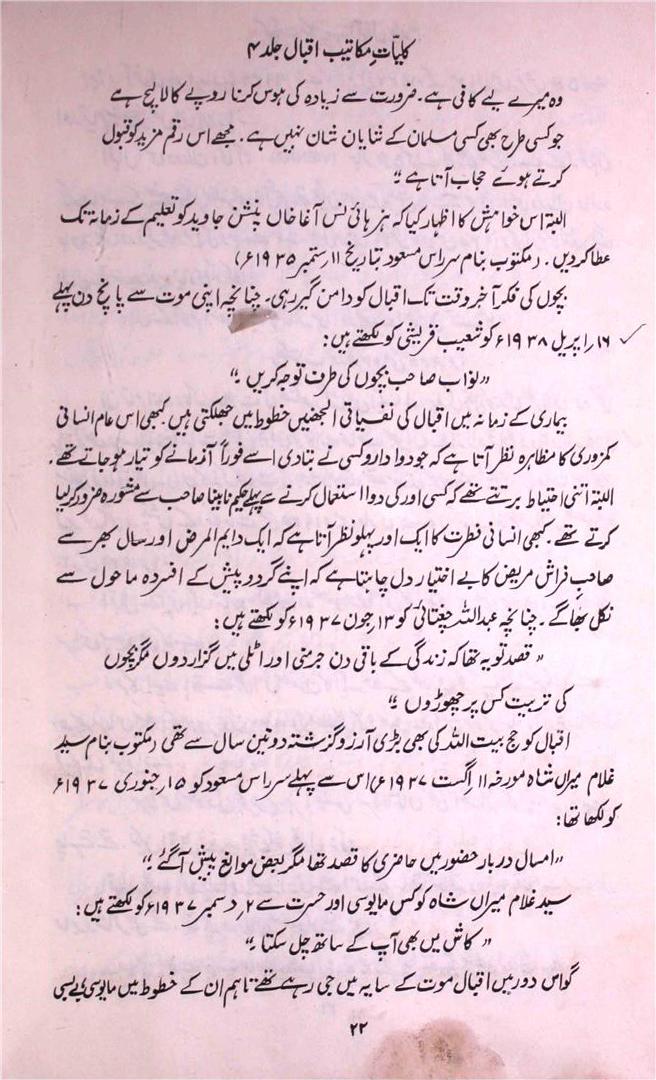 کلیّاتِ مکاتیب اقبال جلد ۴
وہ میرے لیے کافی ہے۔ ضرورت سے زیادہ کی ہوس کرنا روپے کا لالچ ہے
جو کسی طرح بھی کسی مسلمان کے شایانِ شان نہیں ہے۔ مجھے اس رقم مزید کو قبول
کرتے ہوئے حجاب آتا ہے "
البتہ اس خواہش کا اظہار کیا کہ ہز ہائی نس آغا خاں پنشن جاوید کو تعلیم کے زمانہ تک
عطا کر دیں۔ (مکتوب بنام سر راس مسعود بتاریخ ۱۱ ستمبر ۱۹۳۵ء)
بچوں کی فکر آخر وقت تک اقبال کو دامن گیر رہی۔ چنانچہ اپنی موت سے پانچ دن پہلے
۱۶ اپریل ۱۹۳۸ء کو شعیب قریشی کو لکھتے ہیں:
"نواب صاحب بچوں کی طرف توجہ کریں۔"
بیماری کے زمانہ میں اقبال کی نفسیاتی الجھنیں خطوط میں جھلکتی ہیں کبھی اس عام انسانی
کمزوری کا مظاہرہ نظر آتا ہے کہ جو دوا دارو کسی نے بتا دی اسے فوراً آزمانے کو تیار ہو جاتے تھے۔
البتہ اتنی احتیاط برتتے تھے کہ کسی اور کی دوا استعمال کرنے سے پہلے حکیم نابینا صاحب سے مشورہ ضرور کر لیا
کرتے تھے۔ کبھی انسانی فطرت کا ایک اور پہلو نظر آتا ہے کہ ایک دایم المرض اور سال بھر سے
صاحب فراش مریض کا بے اختیار دل چاہتا ہے کہ اپنے گرد و پیش کے افسردہ ماحول سے
نکل بھاگے۔ چنانچہ عبداللہ چغتائی کو ۱۳ جون ۱۹۳۷ء کو لکھتے ہیں:
"قصد تو یہ تھا کہ زندگی کے باقی دن جرمنی اور اٹلی میں گزار دوں مگر بچوں
کی تربیت کس پر چھوڑوں۔"
اقبال کو حج بیت اللہ کی بھی بڑی آرزو گزشتہ دو تین سال سے تھی (مکتوب بنام سید
غلام میراں شاہ مورخہ ۱۱ اگست ۱۹۳۷ء) اس سے پہلے سر راس مسعود کو ۱۵ جنوری ۱۹۳۷ء
کو لکھا تھا:
"امسال دربار حضور میں حاضری کا قصد تھا مگر بعض موانع پیش آ گئے۔"
سید غلام میراں شاہ کو کس مایوسی اور حسرت سے ۲ دسمبر ۱۹۳۷ء کو لکھتے ہیں:
"کاش میں بھی آپ کے ساتھ چل سکتا۔"
گو اس دور میں اقبال موت کے سایہ میں جی رہے تھے تاہم ان کے خطوط میں مایوسی بے بسی
۲۲